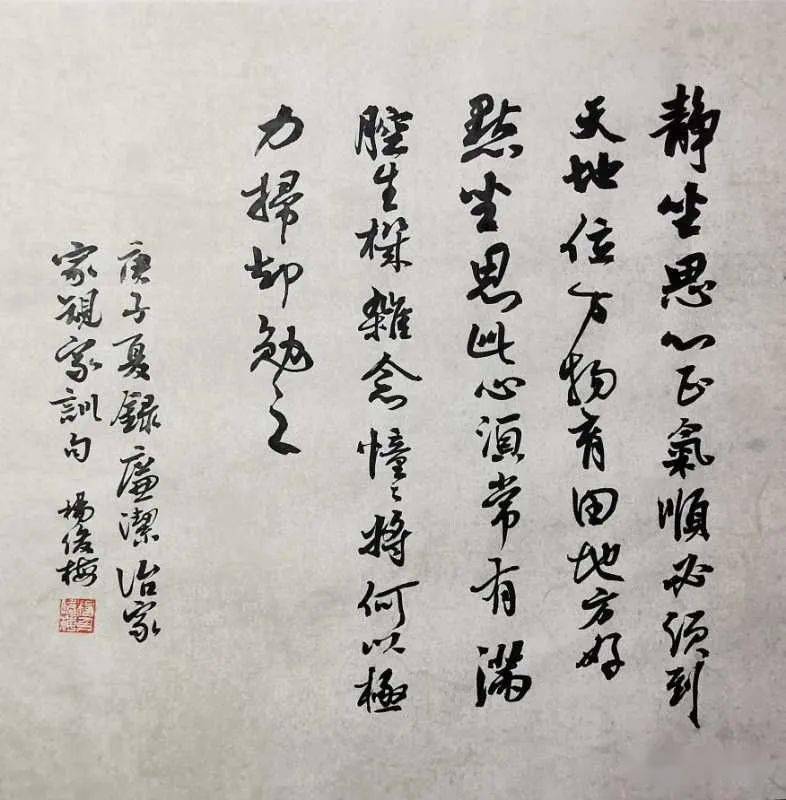 静坐思心正氣順必須到
天地位万物育田地方好
默坐思此心須常有滿
腔生機雜念憧〻將何以極
力掃却勉之
庚子夏録廉潔治家
家規家訓句 楊俊梅